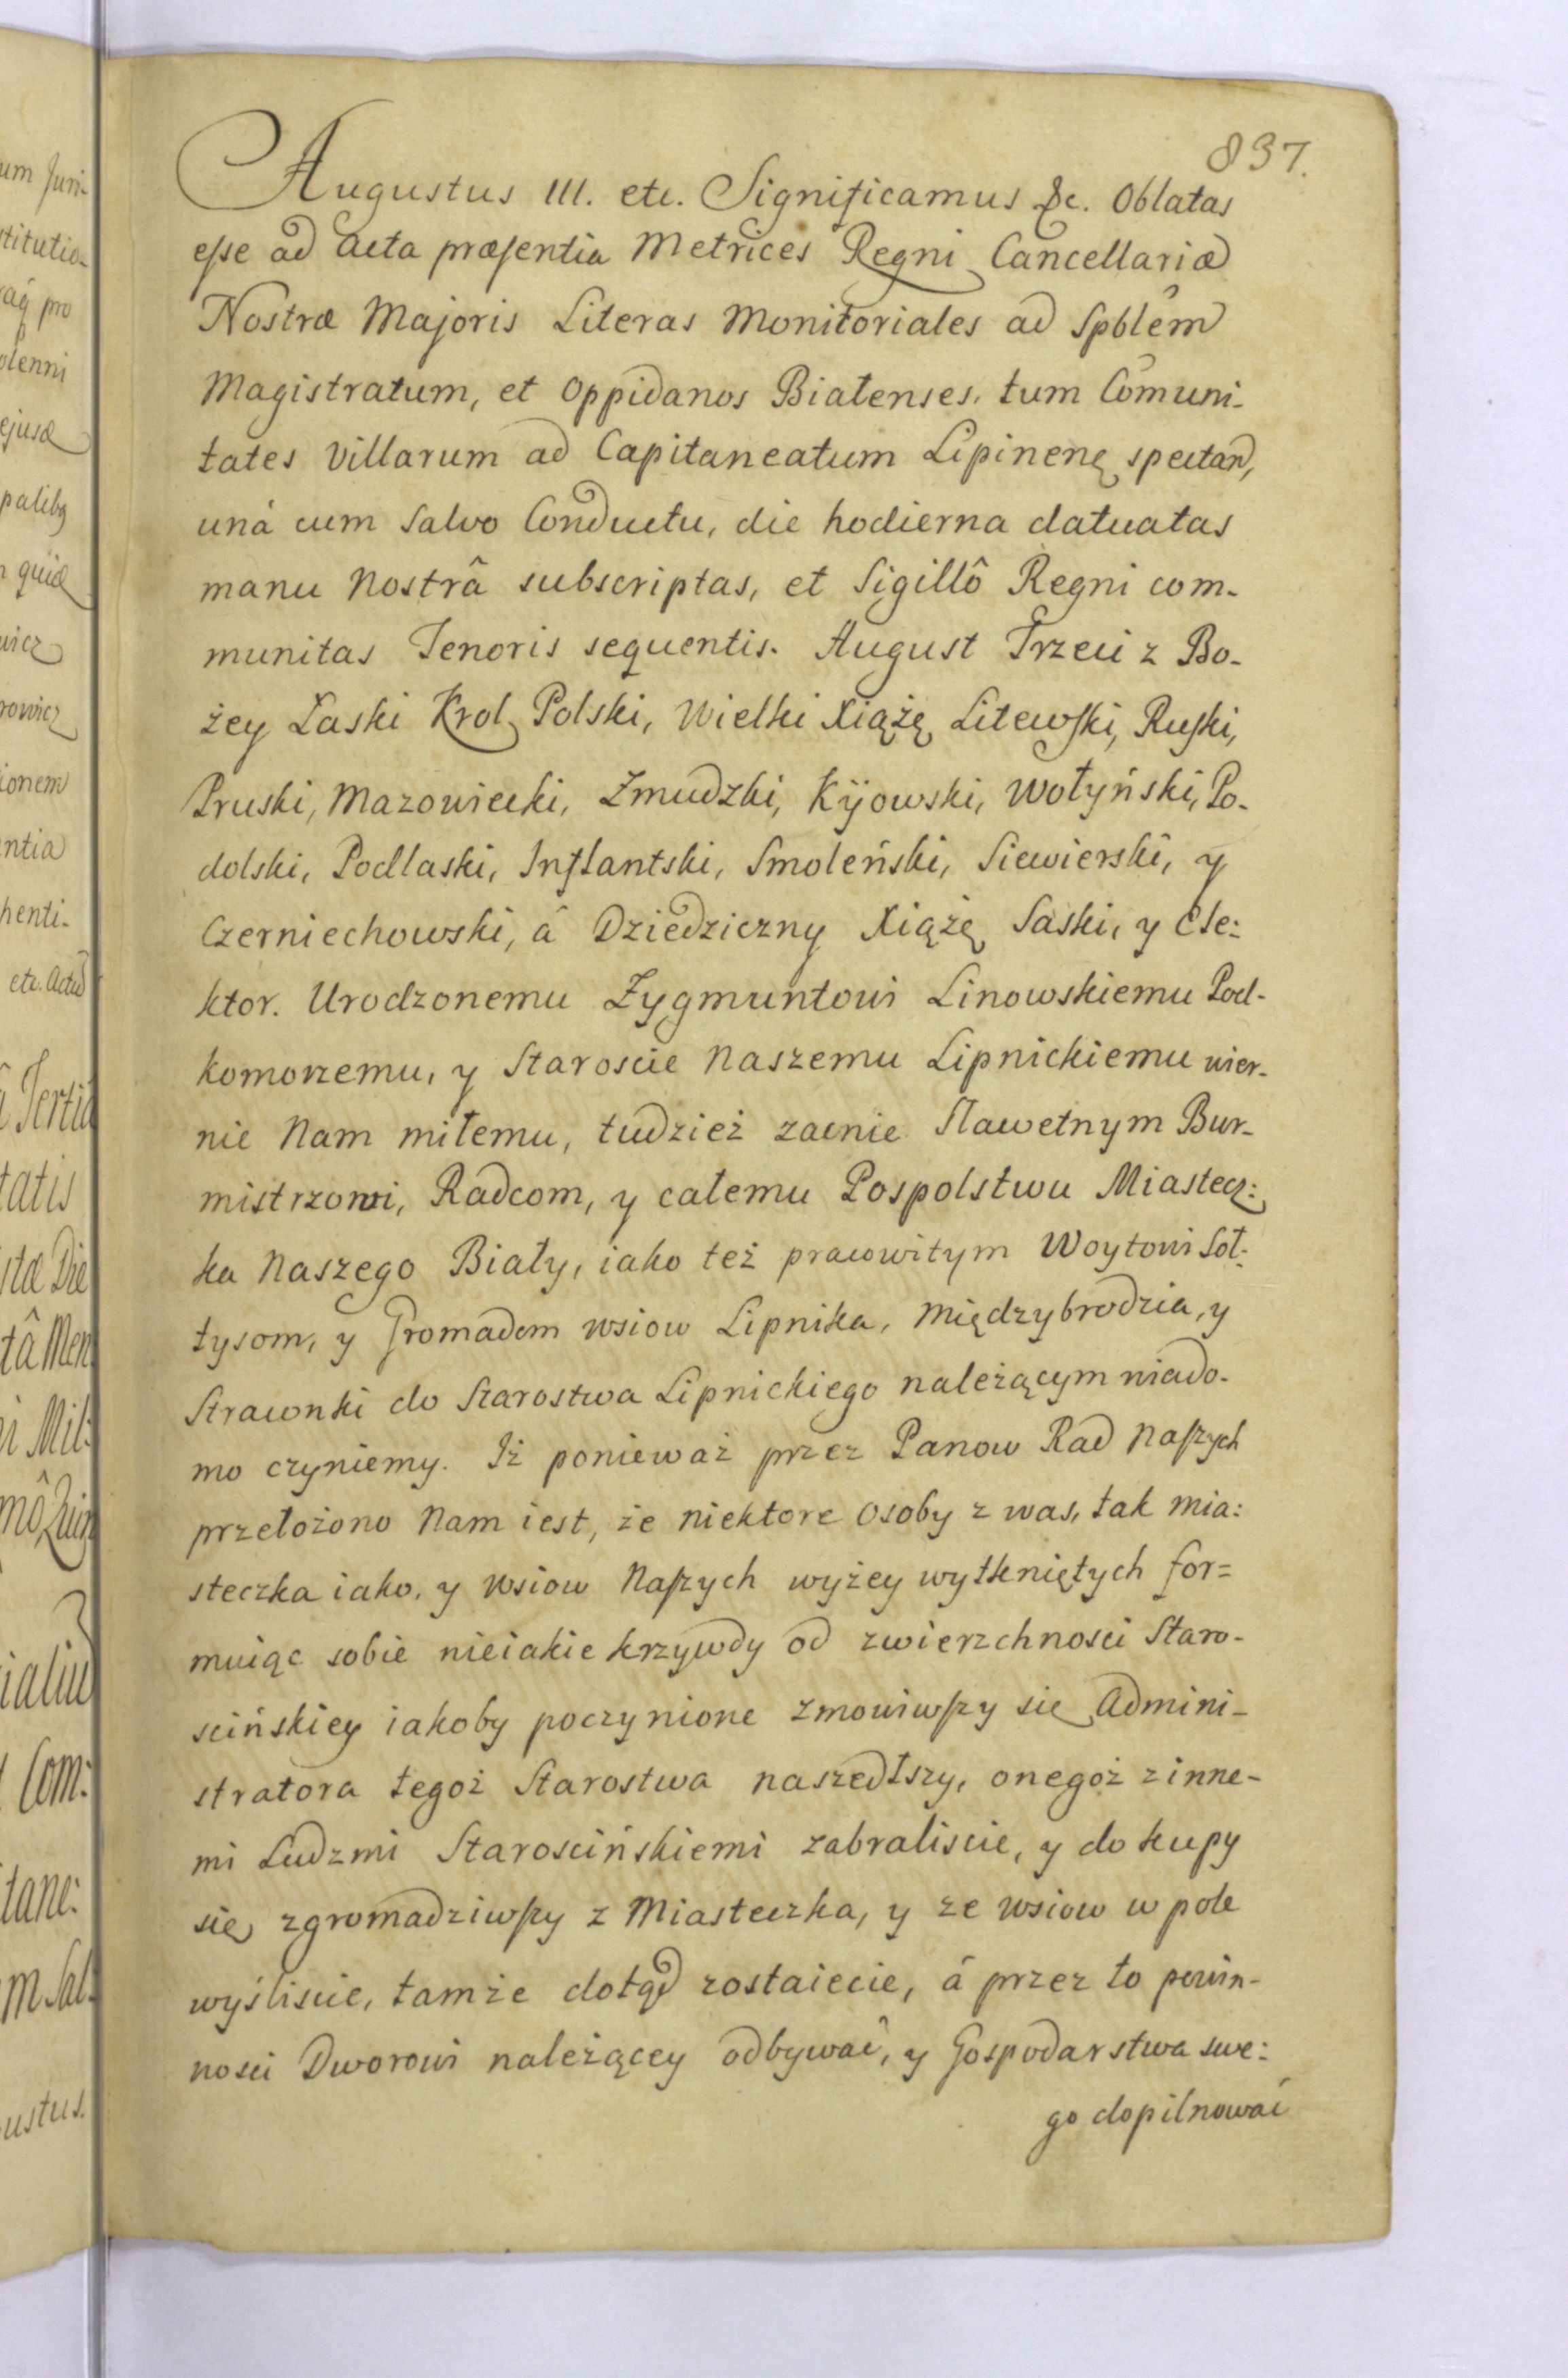 837.
Augustus III. etc. Significamus &c. Oblatas
esse ad Acta præsentia Metrices Regni Cancellariæ
Nostræ Majoris Literas Monitoriales ad Spblem
Magistratum, et Oppidanos Biatenses, tum Comuni-
tates Villarum ad Capitaneatum Lipinenę spectan,
uná cum Salvo Conductu, die hodierna datuatas
manu Nostrâ subscriptas, et Sigillô Regni com-
munitas Tenoris sequentis. August Trzeci z Bo-
żey Łaski Krol Polski, Wielki Xiążę Litewski, Ruski,
Pruski, Mazowiecki, Zmudzki, Kijowski, Wołyński, Po-
dolski, Podlaski, Inflantski, Smoleński, Siewierski, y
Czerniechowski, á Dziedziczny Xiążę Saski, y Ele:
ktor. Urodzonemu Zygmuntowi Linowskiemu Pod-
komorzemu, y Staroscie Naszemu Lipnickiemu wier-
nie Nam miłemu, tudzież zacnie Sławetnym Bur-
mistrzowi, Radcom, y całemu Pospolstwu Miastecz:
ka Naszego Biały, iako też pracowitym Woytowi Soł:
tysom, y Gromadom wsiow Lipnika, Międzybrodzia, y
Strawnki do Starostwa Lipnickiego należącym wiado-
mo czyniemy. Iż ponieważ przez Panow Rad Naszych
przełożono Nam iest, że niektore Osoby z was, tak mia:
steczka iako, y Wsiow Naszych wyżey wytkniętych for=
muiąc sobie nieiakie krzywdy od zwierzchnosci Staro-
scińskiey iakoby poczynione zmowiwszy się Admini-
stratora tegoż Starostwa naszedłszy, onegoż z inne-
mi Ludzmi Staroscińskiemi zabraliscie, y do kupy
się zgromadziwszy z Miasteczka, y ze Wsiow w pole
wyśliscie, tamże dotąd zostaiecie, á przez to powin-
nosci Dworowi należącey odbywać, y Gospodarstwa swe:
go dopilnować